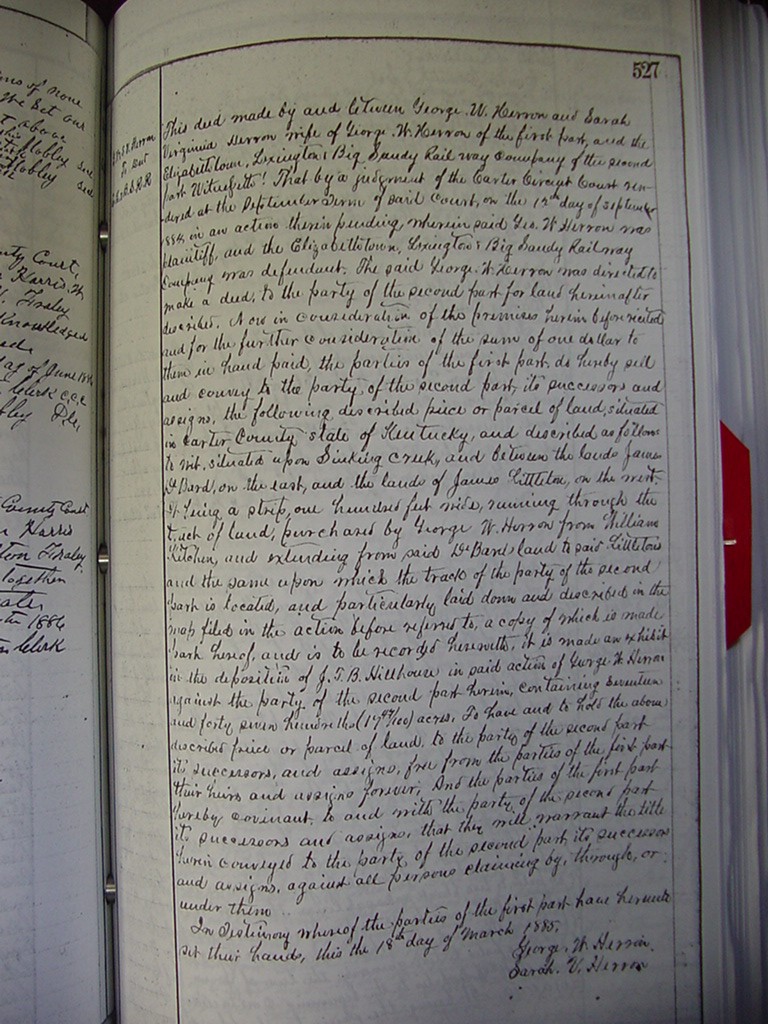 ns of none
We Set our
t above
Mobley
Mobley
nty Court,
Harris
Fraley
Knowledged
ed
ay of June 1886
Clerk C.C.C.
bley D.C.
County Court
Harris
ton Fraley
together
1886
Clerk
527
Herron
This deed made by and between George. W. Herron and Sarah
Virginia Herron wife of George. W. Herron of the first part, and the
Elizabethtown, Lexington & Big Sandy Rail way Company of the second
part Witnesseth! That by a judgment of the Carter Circuit Court ren-
dered at the September Term of said Court, on the day of September
1884, in an action therein pending, wherein said Geo. W. Herron was
plaintiff, and the Elizabethtown, Lexington & Big Sandy Rail way
Company was defendant. The said George. W. Herron was directed to
make a deed, to the party of the second part for land hereinafter
described. Now in consideration of the premises herein before recited
and for the further consideration of the sum of one dollar to
them in hand paid, the parties of the first part, do hereby sell
and convey to the party, of the second part, its successors and
assigns, the following described piece or parcel of land, situated
in Carter County state of Kentucky, and described as follows
to wit, situated upon Sinking Creek, and between the lands James
De Bard, on the east, and the lands of James Littleton, on the west.
It being a strip, one hundred feet wide, running through the
tract of land, purchased by George W. Herron from William
Kitchen, and extending from said De Bards land to said Littletons
and the same upon which the track of the party of the second
part is located, and particularly laid down and described in the
map filed in the action before referred to, a copy of which is made
part hereof, and is to be recorded herewith, it is made an exhibit
in the deposition of J. T. B. Hillhouse in said action of George W. Herron
against the party of the second part herein, containing seventeen
and forty seven hundredths (17 47/100) acres. To have and to hold the above
described piece or parcel of land, to the party of the second part
its successors, and assigns, free from the parties of the first part
their heirs and assigns forever; And the parties of the first part
hereby covinant, to and with the party of the second part
its successors and assigns, that they will warrant the title
herein conveyed to the party of the second part, its successors
and assigns, against all persons claiming by, through, or
under them
In Testimony whereof the parties of the first part have hereunto
set their hands, this the 18th day of March 1885.
George. W. Herron.
Sarah. V. Herron